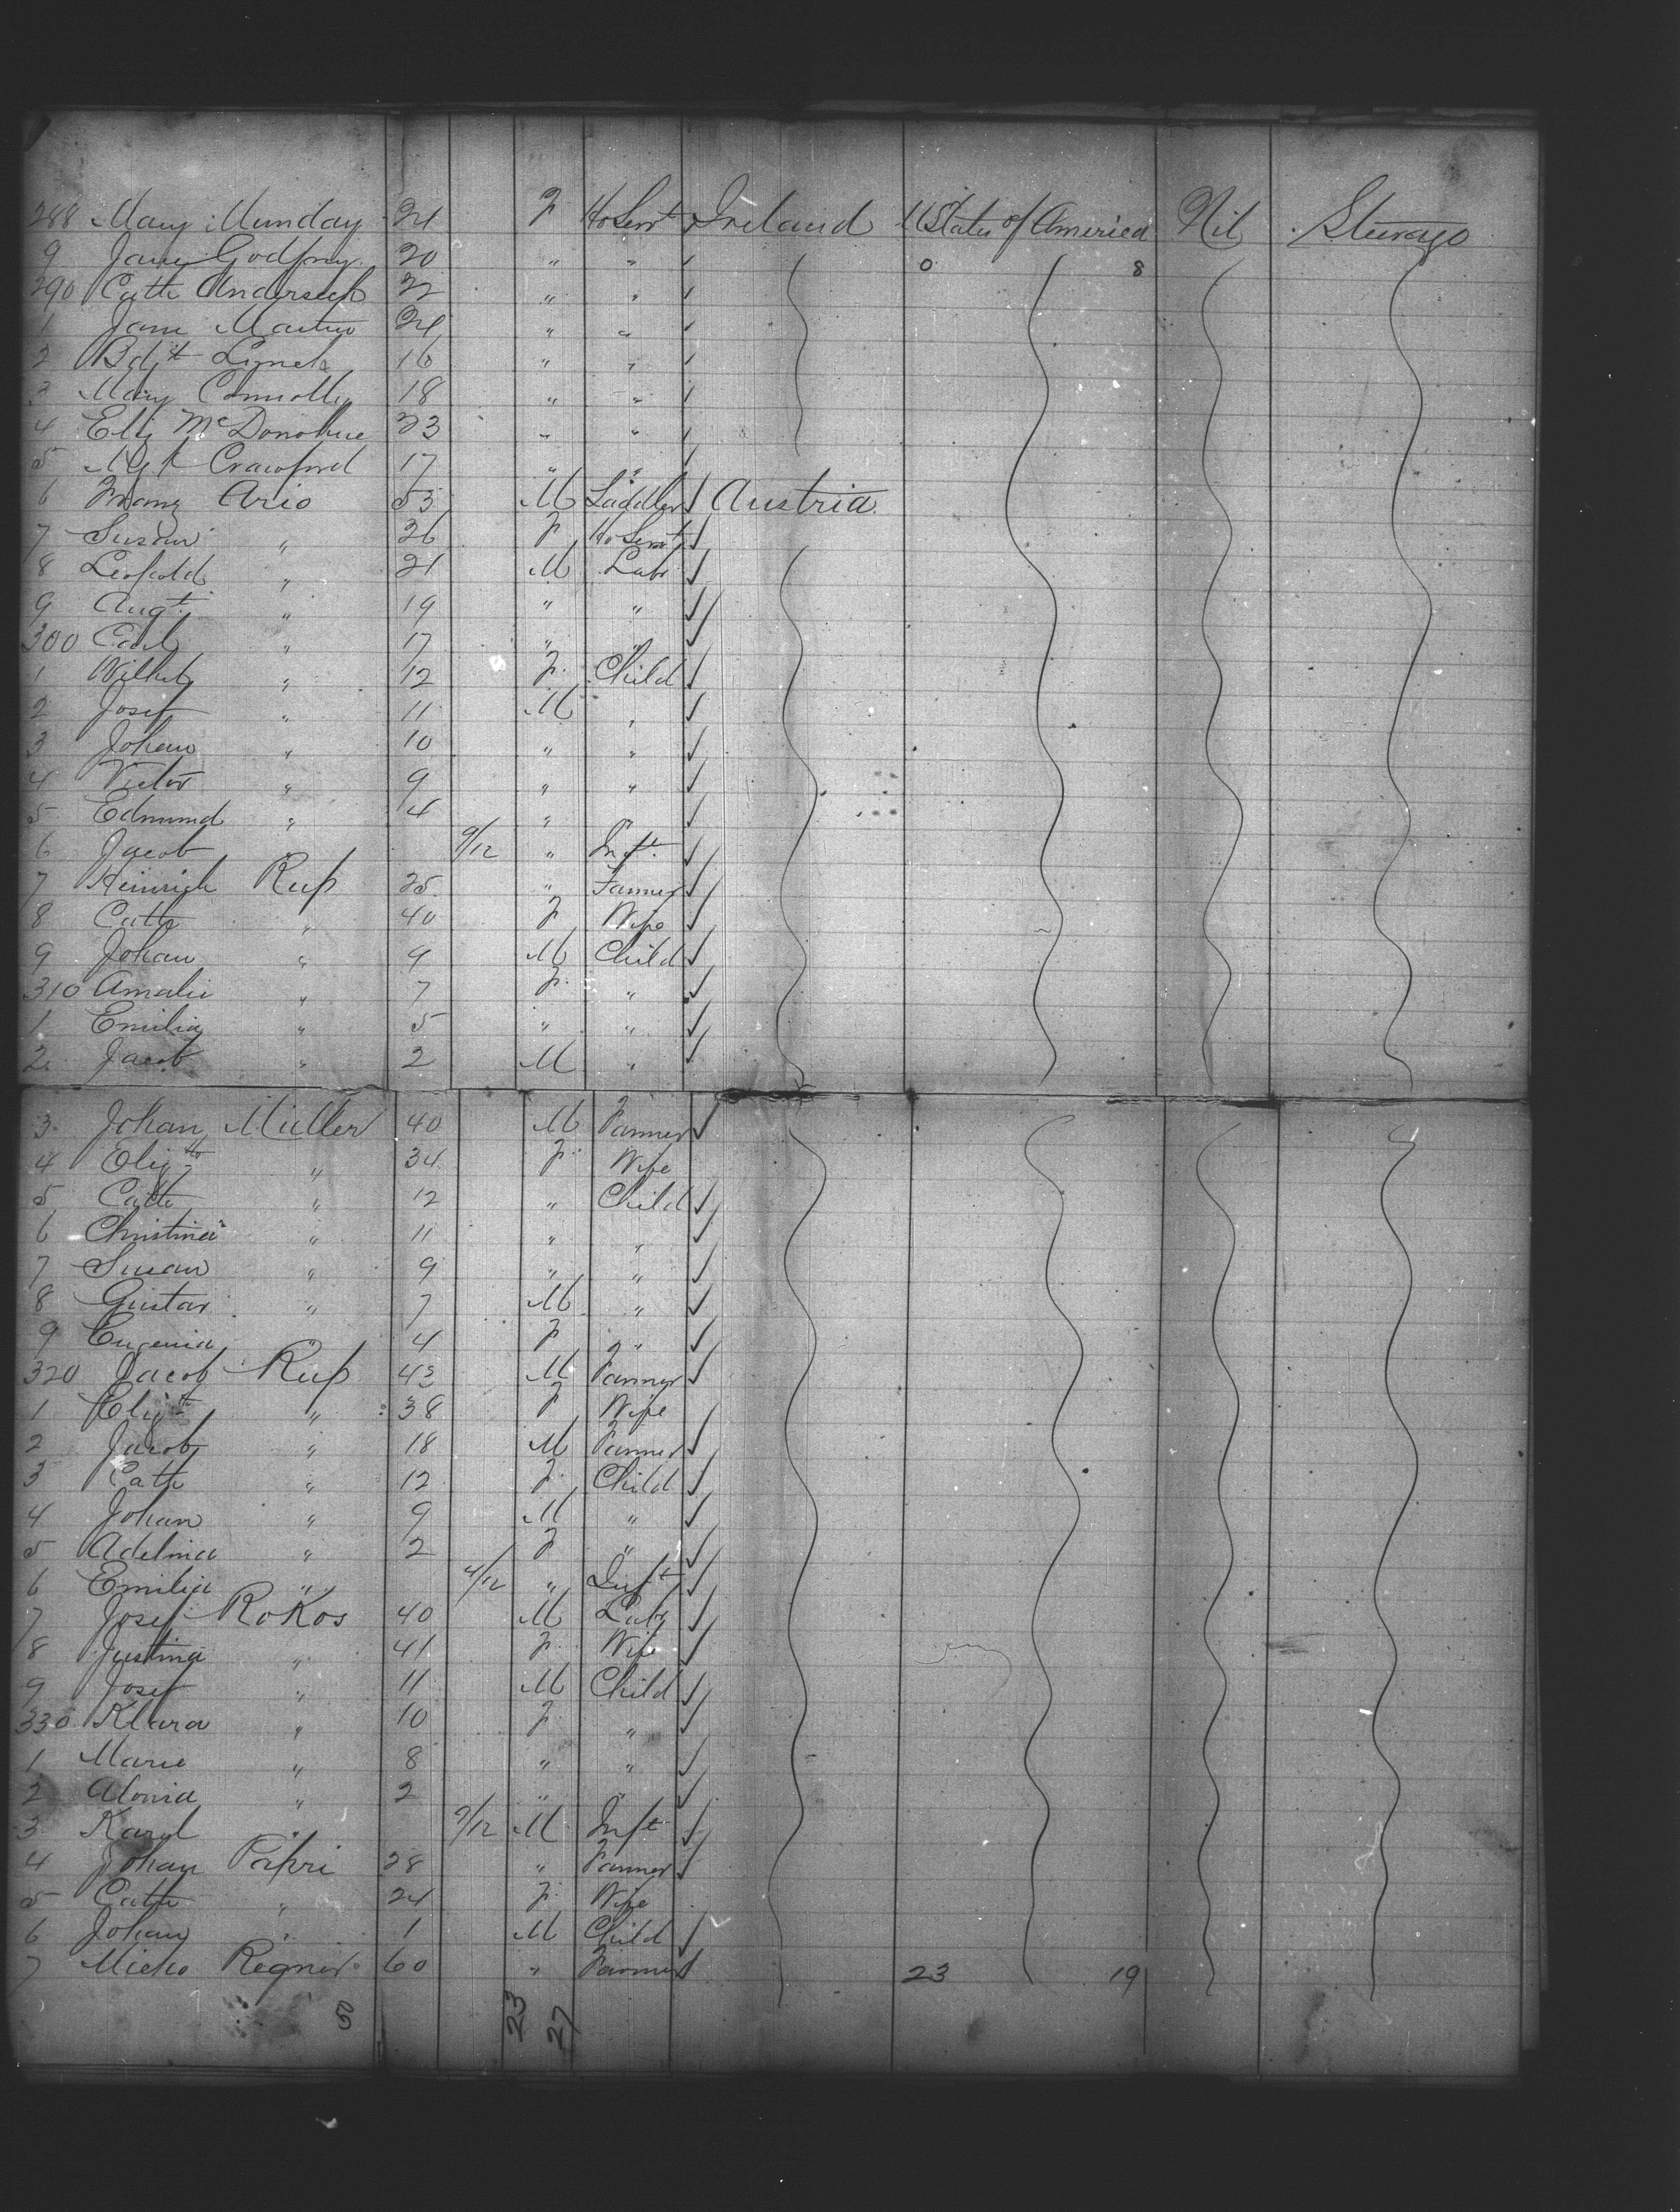 288 Mary Munday 24 F Ho Servt Ireland U States of America Nil Steerage
9 Jane Godfrey 20 " " 0 8
290 Cath 22 " "
1 Jane Martin 24 " "
2 Bdgt Lynch 16 " "
3 Mary Connolly 18 " "
4 Eliz McDonohue 23 " "
5 Mgt Crawford 17 " "
6 Franz Ario 53 M Saddler Austria
7 Susan " 36 F Ho Servt
8 Leopold " 21 M Labr
9 Augt " 19 " "
300 Carl " 17 " "
1 Wilhel " 12 F Child
2 Josef " 11 M "
3 Johan " 10 " "
4 Victor " 9 " "
5 Edmund " 4 " "
6 Jacob " 9/12 " Inft
7 Heinrich Rup 25 " Farmer
8 Cath " 40 F Wife
9 Johan " 9 M Child
310 Amalie " 7 F "
1 Emilia " 5 " "
2 Jacob " 2 M "
3 Johan Muller 40 M Farmer
4 Elizth " 34 F Wife
5 Cath " 12 " Child
6 Christina " 11 " "
7 Susan " 9 " "
8 Gustav " 7 M "
9 Eugenia " 4 F "
320 Jacob Rup 43 M Farmer
1 Elizth " 38 F Wife
2 Jacob " 18 M Farmer
3 Cath " 12 F Child
4 Johan " 9 M "
5 Adelina " 2 F "
6 Emilia " 4/12 " Inft
7 Josef Rokos 40 M Labr
8 Justina " 41 F Wife
9 Josef " 11 M Child
330 Klara " 10 F "
1 Marie " 8 " "
2 Alonia " 2 " "
3 Karl " 9/12 M Inft
4 Johan 28 " Farmer
5 Cath " 24 F Wife
6 Johan " 1 M Child
7 Regner 60 " Farmer 23 19
50 23 27